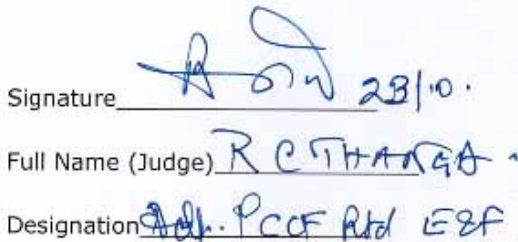 Signature 23/10.
Full Name (Judge) R C THANGA
Designation Adl. PCCF Rtd E&F